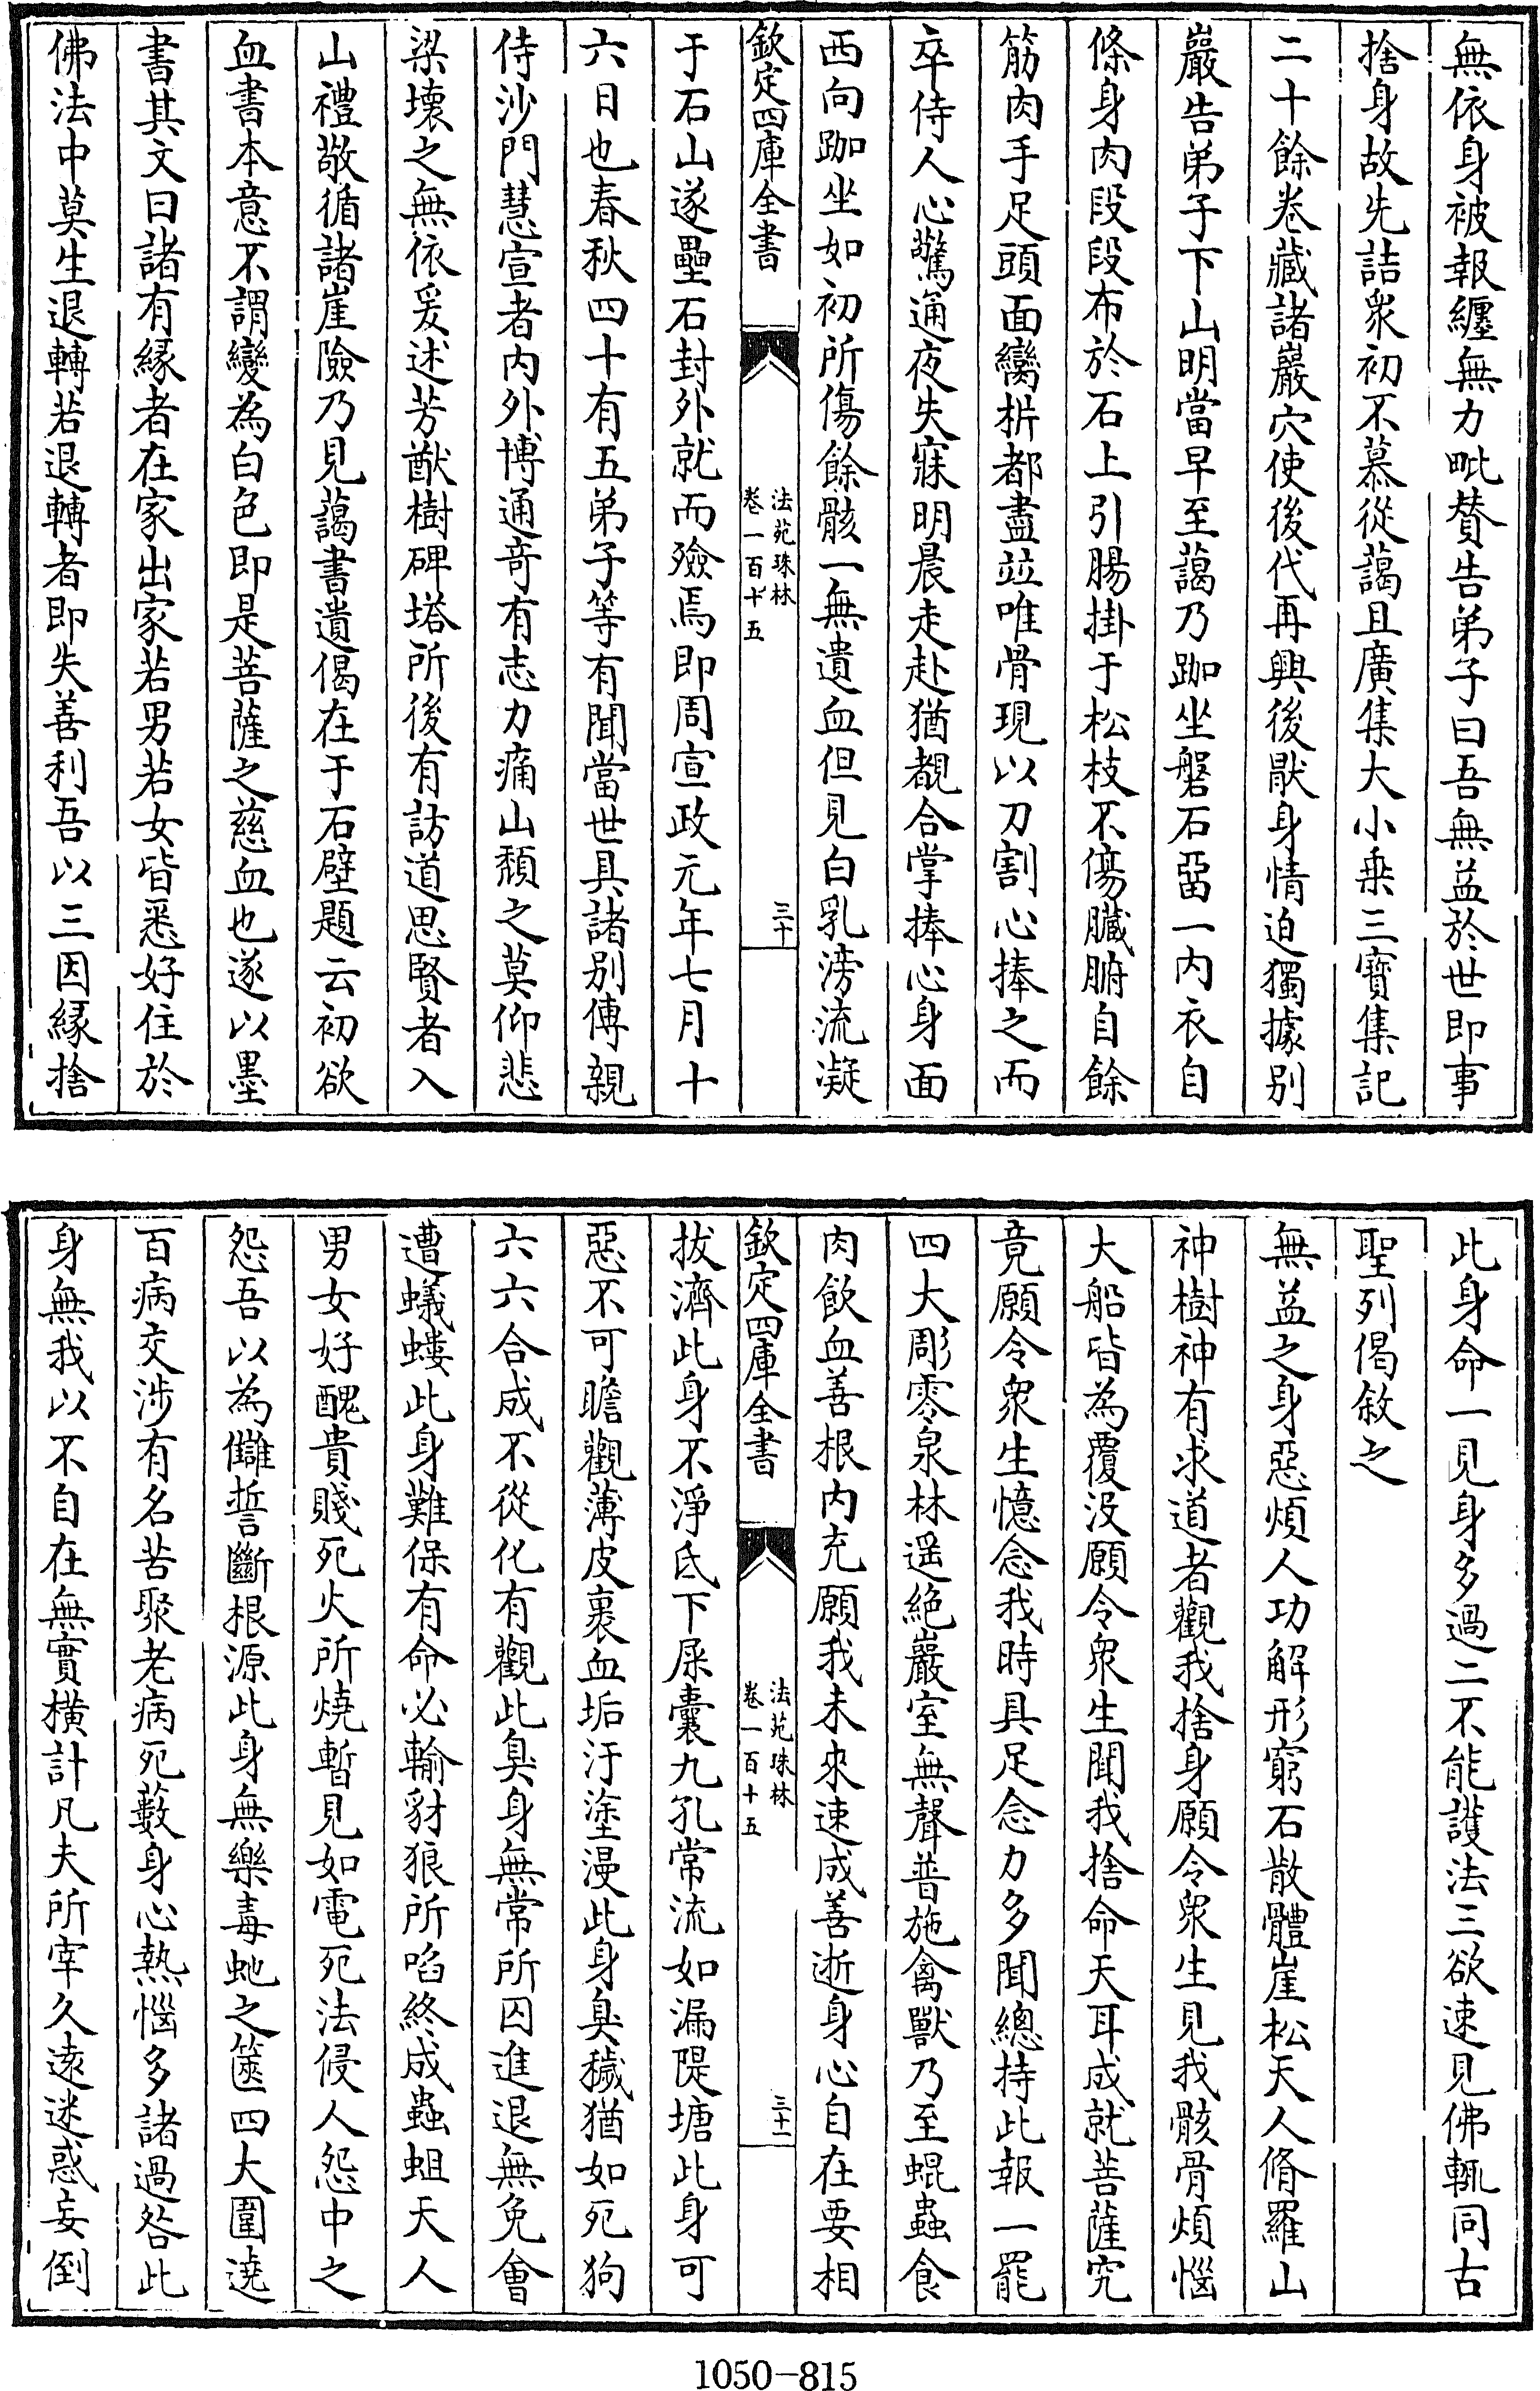 無依身被報纏無力毗賛告弟子曰吾無益於世即事
捨身故先詰衆初不慕從藹且廣集大小乗三寶集記
二十餘卷藏諸巖穴使後代再興後厭身情迫獨據别
巖告弟子下山明當早至藹乃跏坐磐石畱一内衣自
條身肉段段布於石上引腸掛于松枝不傷臓腑自餘
筋肉手足頭面臠析都盡並唯骨現以刀割心捧之而
卒侍人心驚通夜失寐明晨走赴猶覩合掌捧心身面
西向跏坐如初所傷餘骸一無遺血但見白乳滂流凝
欽定四庫全書
法苑珠林
卷一百十五
三十
于石山遂壘石封外就而殮焉即周宣政元年七月十
六日也春秋四十有五弟子等有聞當世具諸别傳親
侍沙門慧宣者内外博通竒有志力痛山頹之莫仰悲
梁壞之無依爰述芳猷樹碑塔所後有訪道思賢者入
山禮敬循諸崖險乃見藹書遺偈在于石壁題云初欲
血書本意不謂變為白色即是菩薩之慈血也遂以墨
書其文曰諸有縁者在家出家若男若女皆悉好住於
佛法中莫生退轉若退轉者即失善利吾以三因縁捨
此身命一見身多過二不能護法三欲速見佛輒同古
聖列偈敘之
無益之身惡煩人功解形窮石散體崖松天人脩羅山
神樹神有求道者觀我捨身願令衆生見我骸骨煩惱
大船皆為覆没願令衆生聞我捨命天耳成就菩薩究
竟願令衆生憶念我時具足念力多聞總持此報一罷
四大彫零泉林遥絶巖室無聲普施禽獸乃至蜫蟲食
肉飲血善根内充願我未來速成善逝身心自在要相
欽定四庫全書
法苑珠林
卷一百十五
三十一
拔濟此身不淨氐下屎囊九孔常流如漏隄塘此身可
惡不可瞻觀薄皮裹血垢汙塗漫此身臭穢猶如死狗
六六合成不從化有觀此臭身無常所囚進退無免會
遭蟻螻此身難保有命必輸豺狼所啗終成蟲蛆天人
男女好醜貴賤死火所燒暫見如電死法侵人怨中之
怨吾以為讎誓斷根源此身無樂毒虵之篋四大圍遶
百病交涉有名苦聚老病死藪身心熱惱多諸過咎此
身無我以不自在無實横計凡夫所宰久逺迷惑妄倒
1050-815